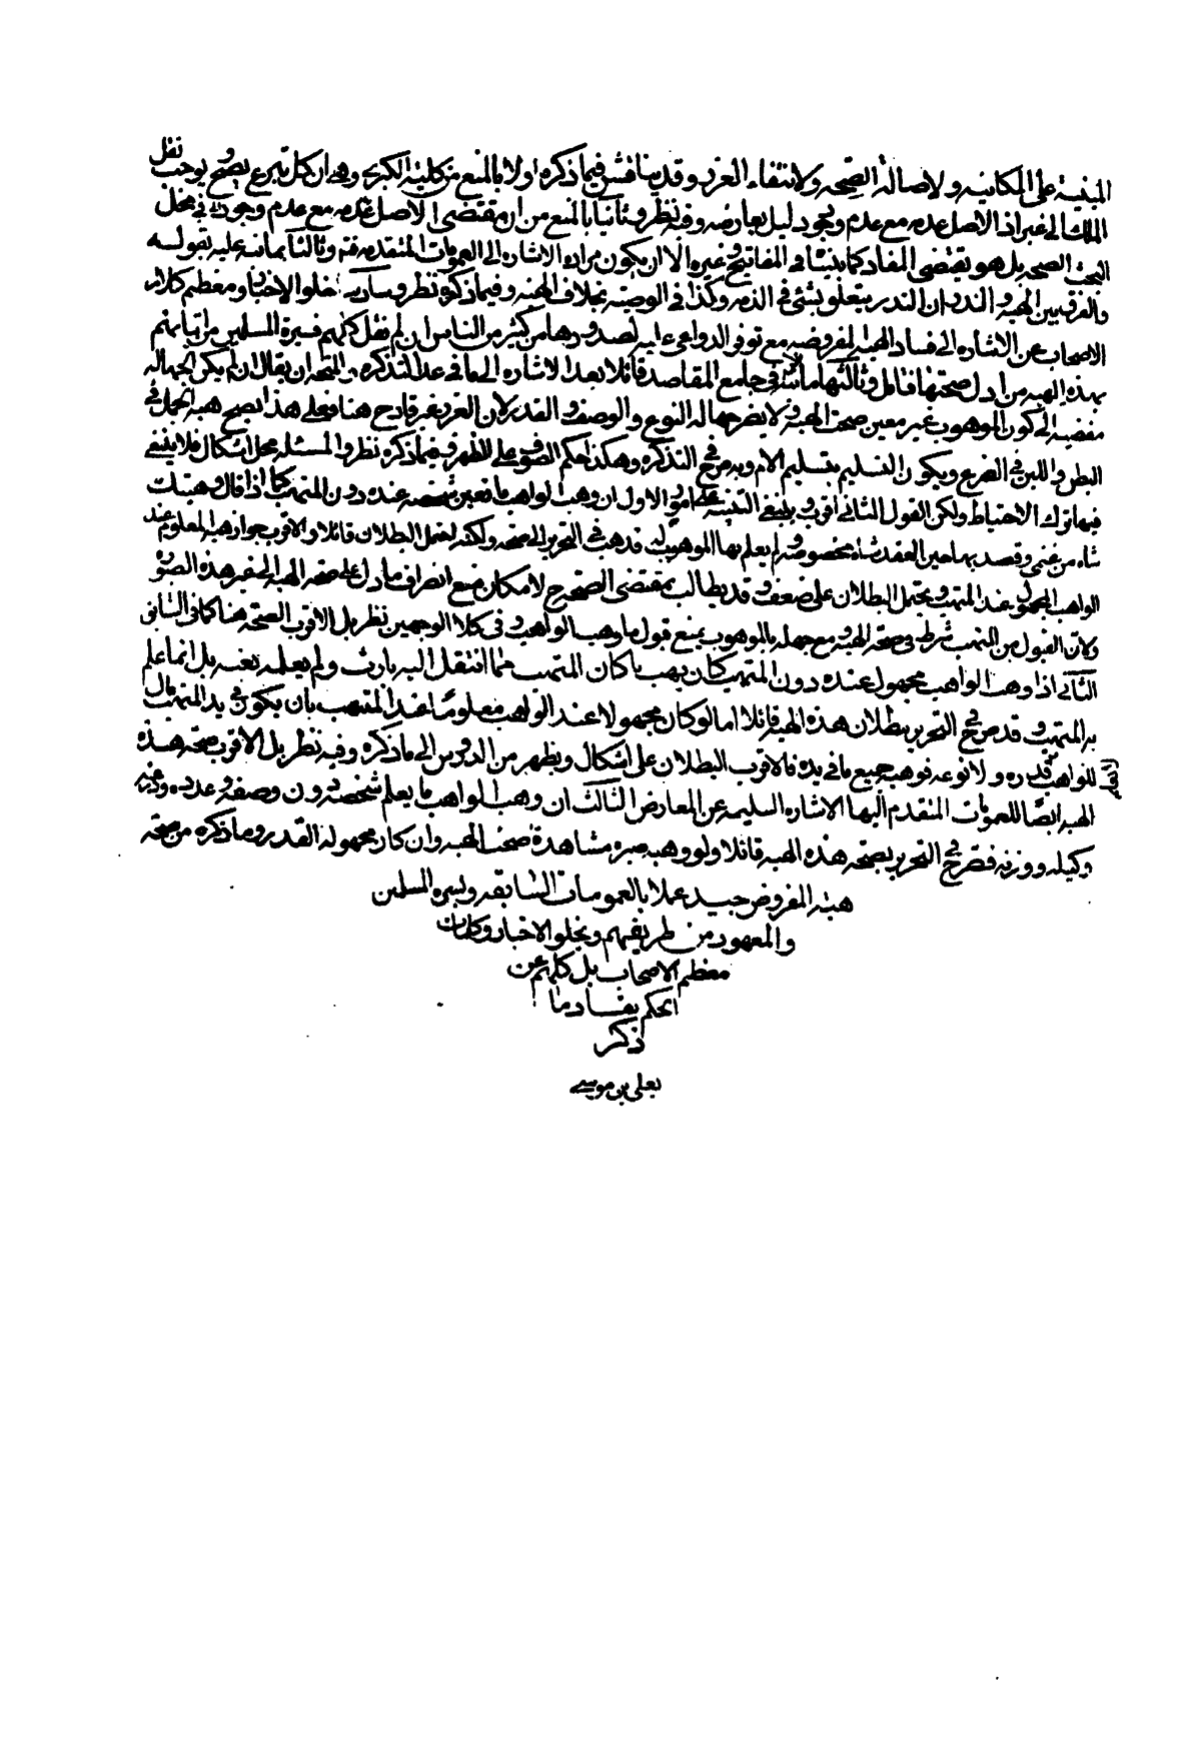 المبنية على المكانيه ولاصالة الصحه ولانتفاء الغرر وقد يناقش فيما ذكره اولا بالمنع من كلية الكبرى وهى ان كل تبرع يصح ويوجب نقل
الملك الى غير اذ الاصل عدمه مع عدم وجود دليل يعارضه وفيه نظر وثانيا بالمنع من ان مقتضى الاصل عدمه مع عدم وجوده فى محل
البحث الصحه بل هو يقتضى الفساد كما بيناه فى المفاتيح وغيره الا ان يكون مراده الاشاره الى العمومات المتقدمه فتم وثالثا بما نبه عليه بقوله
والفرق بين الهبه والنذر ان النذر يتعلق بشئ فى الذمه وكذا فى الوصيه بخلاف الهبه وفيما ذكره نظر وسادسا خلو الاخبار ومعظم كلام
الاصحاب عن الاشاره الى فساد الهبه المفروضه مع توفر الدواعى عليه لصدورها من كثير من الناس ان لم نقل كلهم فسيرة المسلمين مراتبا بهم
بهذه الهبه من ادل صحتها فتامل وثالثها ما فى جامع المقاصد قائلا بعد الاشاره الى ما فى عد التذكره والمتجه ان يقال ان لم يكن الجهاله
مفضيه الى كون الموهوب غير معين صحت الهبه ولا يضر جهاله النوع والوصف والقدر لان الغرر غير قادح هنا فعلى هذا يصح هبه الحمل فى
البطن واللبن فى الضرع ويكون التسليم بتسليم الام وبه صرح فى التذكره وهكذا حكم الصوف على الظهر وفيما ذكره نظر والمسئله محل اشكال فلا ينبغى
فيها ترك الاحتياط ولكن القول الثانى اقرب وينبغى التنبيه على امور الاول ان وهب الواهب ما تعين شخصه عنده دون المتهب كما اذا قال وهبتك
شاه من غنمى وقصد بها حين العقد شاه مخصوصه ولم يعلم بها الموهوب له فقد ذهب فى التحرير الى صحه ولكنه احتمل البطلان قائلا والاقرب جواز هبة المعلوم عند
الواهب المجهول عند المتهب ويحتمل البطلان على ضعف وقد يطالب بمقتضى الصحه ح لامكان منع انصراف ما دل على صحه الهبه الى غير هذه الصوره
ولان القبول من المتهب شرط فى صحه الهبه ومع جهله بالموهوب يمنع قبول ما وهب الواهب وفى كلا الوجهين نظر بل الاقرب الصحه هنا كما فى السابق
الثانى اذا وهب الواهب مجهول عنده دون المتهب كان يهب ما كان المتهب مما انتقل اليه بارث ولم يعلمه بعينه بل انما علم
به المتهب وقد صرح فى التحرير بطلان هذه الهبه قائلا اما لو كان مجهولا عند الواهب معلوما عند المتهب بان يكون فى يد المتهب مال
للواهب لا يعلم قدره ولا نوعه فوهبه جميع ما فى يده فالاقرب البطلان على اشكال ويظهر من الدروس الى ما ذكره وفيه نظر بل الاقرب صحه هذه
الهبه ايضا للعمومات المتقدم اليها الاشاره السليمه عن المعارض الثالث ان وهب الواهب ما يعلم شخصه دون وصفه وعدده وغيره
وكيله ووزنه فصرح فى التحرير بصحه هذه الهبه قائلا ولو وهب صبره مشاهدة صحت الهبه وان كان مجهوله القدر وما ذكره من صحه
هبة المفروض جيد عملا بالعمومات السابقه ولسيره المسلمين
والمعهود من طريقتهم وبخلو الاخبار وكلمات
معظم الاصحاب بل كلهم عن
الحكم بفساد ما
ذكر
يعلى بن موسى